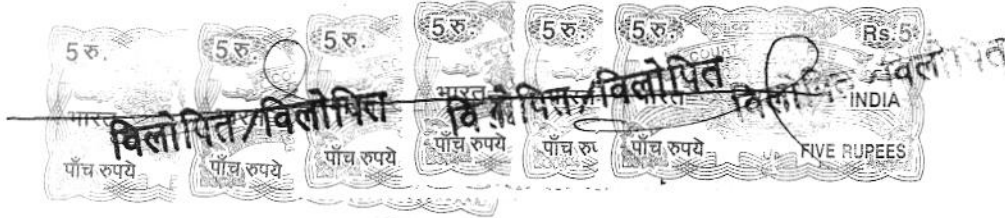 5 रु. 5 रु. 5 रु. 5 रु. 5 रु. 5 रु. Rs. 5
COURT
भारत भारत INDIA
विलोपित/विलोपित विलोपित/विलोपित विलोपित विलोपित
पाँच रुपये पाँच रुपये पाँच रुपये पाँच रुपये पाँच रु पाँच रुपये FIVE RUPEES